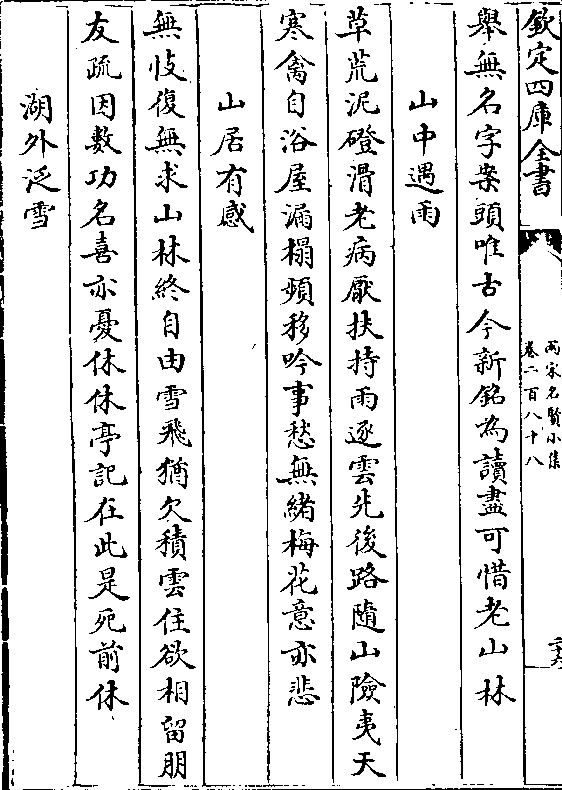 欽定四庫全書
兩宋名賢小集
卷二百八十八
二十六
舉無名字案頭唯古今新銘為讀盡可惜老山林
山中遇雨
草荒泥磴滑老病厭扶持雨逐雲先後路隨山險夷天
寒禽自浴屋漏榻頻移吟事愁無緒梅花意亦悲
山居有感
無忮復無求山林終自由雪飛猶欠積雲住欲相留朋
友疏因數功名喜亦憂休休亭記在此是死前休
湖外泛雪